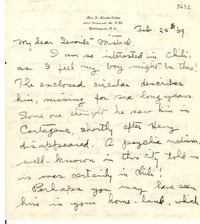 Feb. 25th 39
My dear Señorita Mistral,
I am so interested in Chili,
as I feel my boy might be there
The enclosed circular describes
him, missing for six long years.
Some one thought he saw him in
Cartagena, shortly after Harry
disappeared. A psychic medium,
well-known in this city told me
is was certainly in Chili!
Perhaps you may have seen
him in your home-land, which